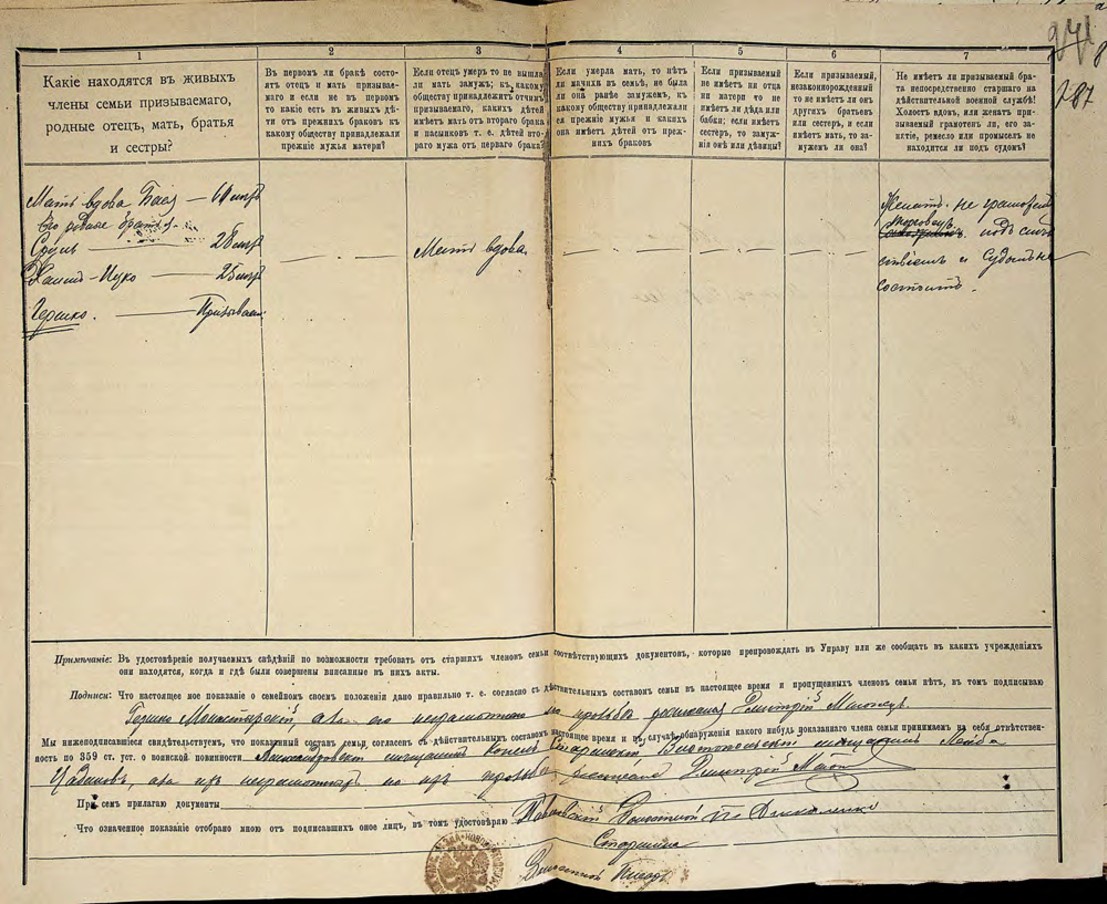 287
1
2
3
4
5
6
7
Какіе находятся въ живыхъ
члены семьи призываемаго,
родные отецъ, мать, братья
и сестры?
Въ первомъ ли бракѣ состо-
ятъ отецъ и мать призывае-
маго и если не въ первомъ
то какіе есть въ живыхъ дѣ-
ти отъ прежнихъ браковъ къ
какому обществу принадлежали
прежніе мужья матери?
Если отецъ умеръ то не вышла
ли мать замужъ; къ какому
обществу принадлежитъ отчимъ
призываемаго, какихъ дѣтей
имѣетъ мать отъ втораго брака
и пасынковъ т. е. дѣтей вто-
раго мужа отъ перваго брака?
Если умерла мать, то нѣтъ
ли мачихи въ семьѣ, не была
ли она ранѣе замужемъ, къ
какому обществу принадлежали
ея прежніе мужья и какихъ
она имѣетъ дѣтей отъ преж-
нихъ браковъ
Если призываемый
не имѣетъ ни отца
ни матери то не
имѣетъ ли дѣда или
бабки; если имѣетъ
сестеръ, то замуж-
нія онѣ или дѣвицы?
Если призываемый,
незаконорожденный
то не имѣетъ ли онъ
другихъ братьевъ
или сестеръ, и если
имѣетъ мать, то за-
мужемъ ли она?
Не имѣетъ ли призываемый бра-
та непосредственно старшаго на
дѣйствительной военной службѣ!
Холостъ вдовъ, или женатъ при-
зываемый грамотенъ ли, его за-
нятіе, ремесло или промыселъ не
находится ли подъ судомъ?
Мать вдова Бася —
Его родные братья
Сруль — 28 лѣтъ
Хаимъ-Ицко — 25 лѣтъ
Гершко. — Призываем.
Мать вдова
Женатъ. не грамотенъ
подъ слѣд
ствіемъ и судомъ не
состоитъ.
Примѣчаніе: Въ удостовѣреніе получаемыхъ свѣдѣній по возможности требовать отъ старшихъ членовъ семьи соотвѣтствующихъ документовъ, которые препровождать въ Управу или же сообщать въ какихъ учрежденіяхъ
они находятся, когда и гдѣ были совершены вписанные въ нихъ акты.
Подписи: Что настоящее мое показаніе о семейномъ своемъ положеніи дано правильно т. е. согласно съ дѣйствительнымъ составомъ семьи въ настоящее время и пропущенныхъ членовъ семьи нѣтъ, въ томъ подписываю
Гершко Монастырскій, а за его неграмотно по просьбѣ росписался Дмитрій
Мы нижеподписавшіеся свидѣтельствуемъ, что показанный составъ семьи согласенъ съ дѣйствительнымъ составомъ въ настоящее время и въ случаѣ обнаруженія какого нибудь показаннаго члена семьи принимаемъ на себя отвѣтствен-
ность по 359 ст. уст. о воинской повинности
а за ихъ неграмотн по ихъ просьбѣ росписался Дмитрій
При семъ прилагаю документы
Что означенное показаніе отобрано мною отъ подписавшихъ оное лицъ, въ томъ удостовѣряю
Старшина
Волостной Писарь